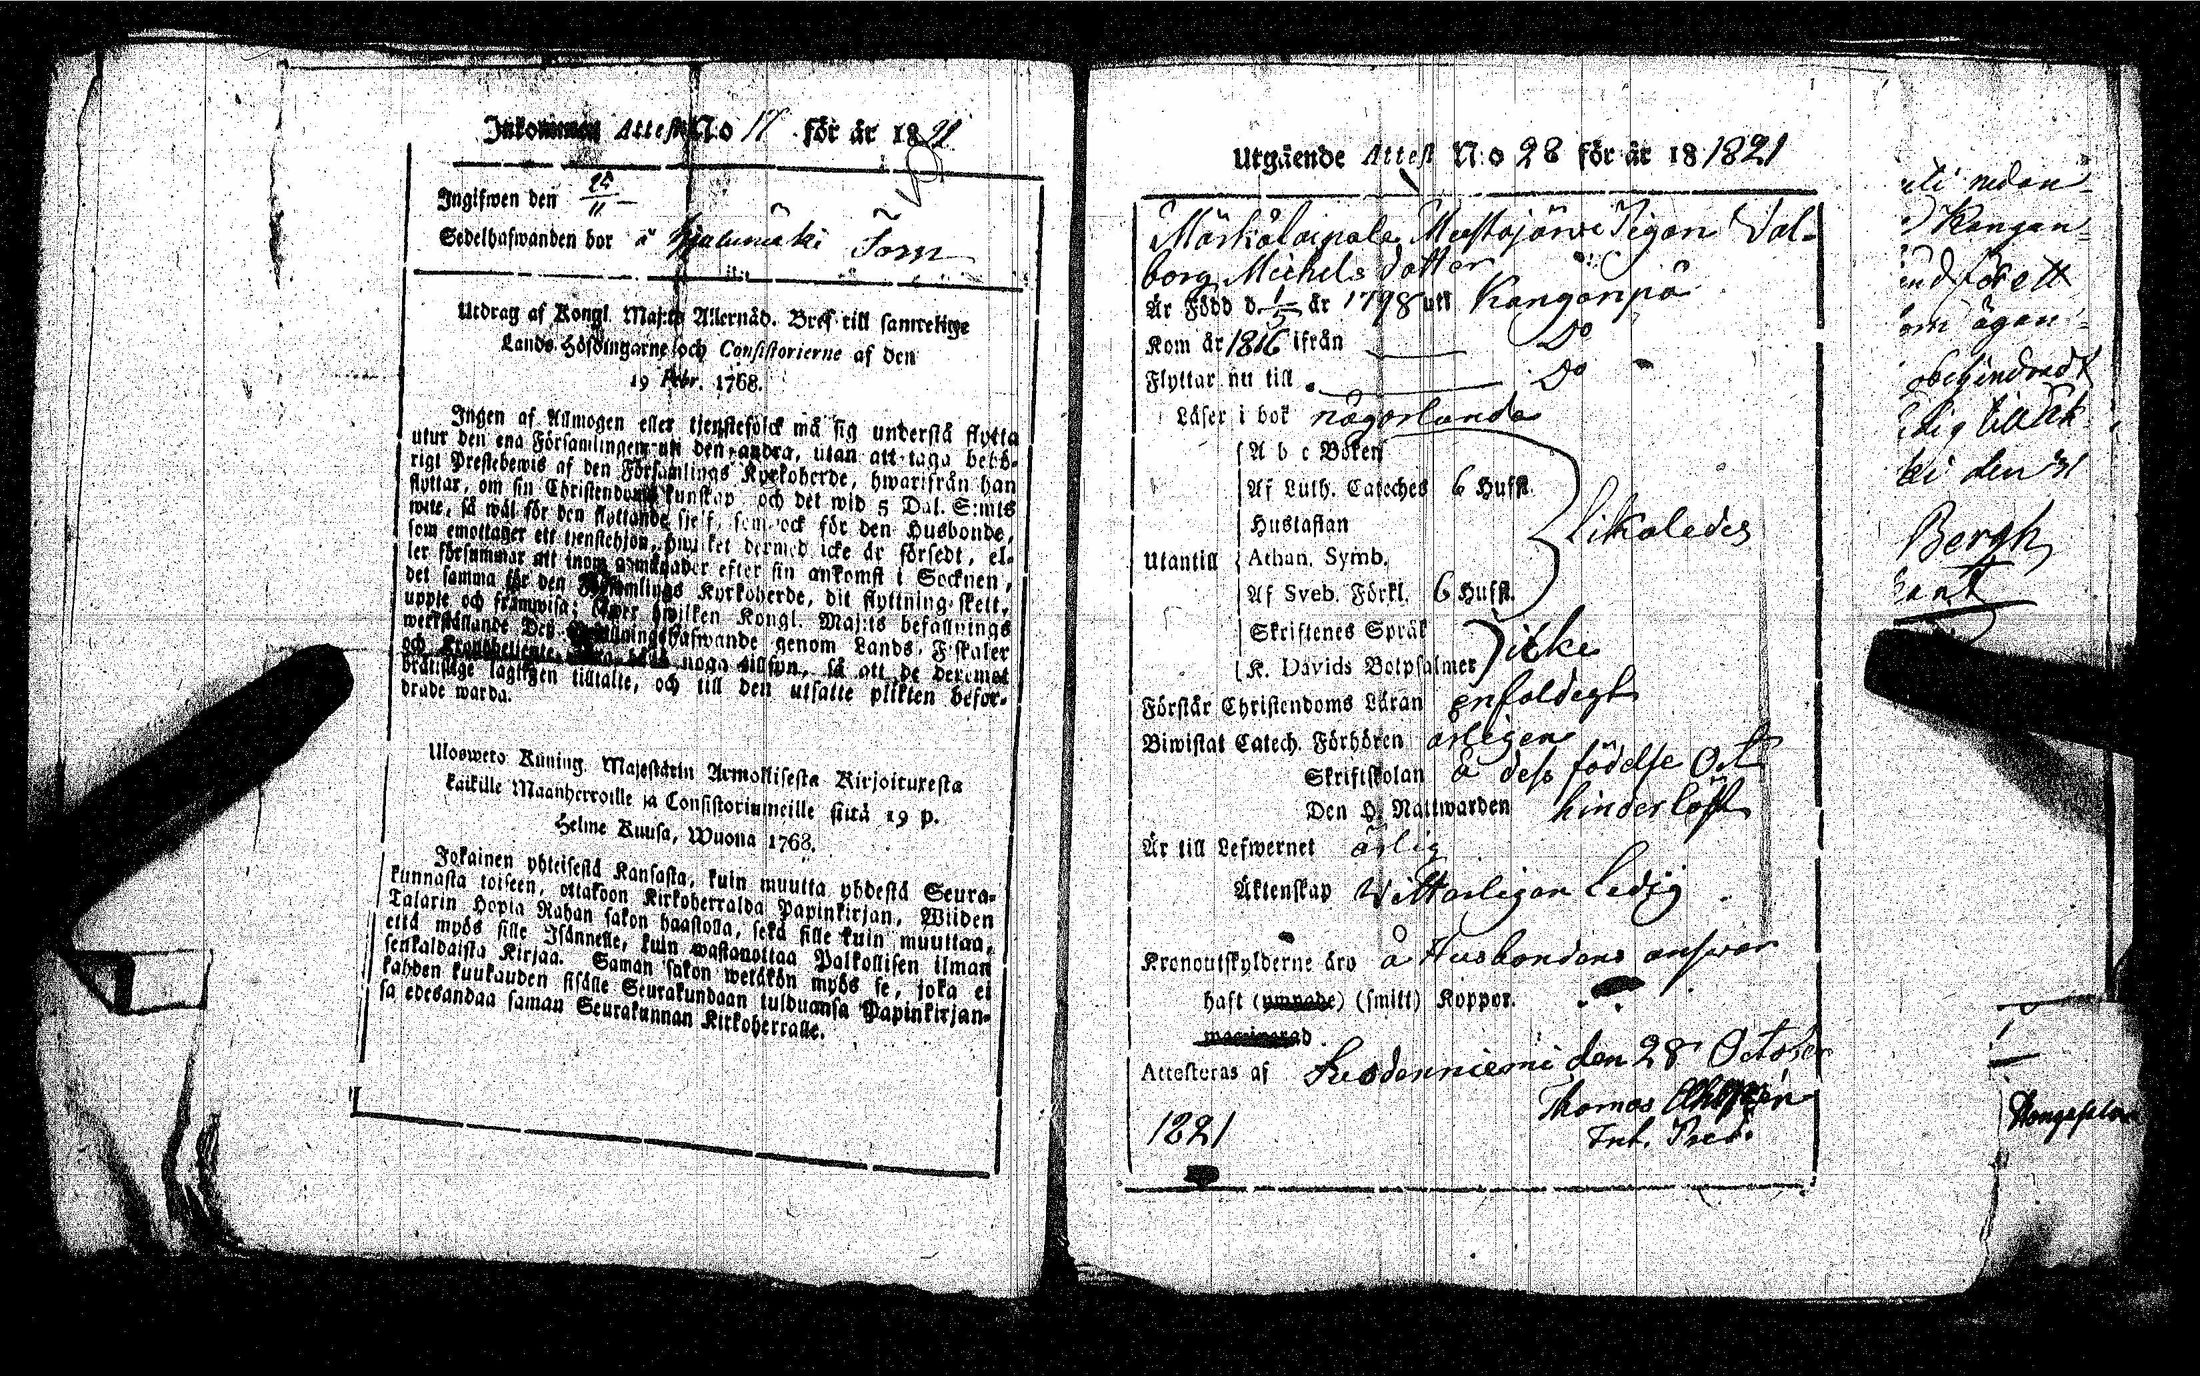 Inkommen Attest N:o 17 för år 1821
Ingifwen den 25/11
Sedelhafwanden bor å Torp
Utdrag af Kongl. Maj:ts Allernåd. Bref till samtelige
Lands Höfdingarne och Consistorierne af den
19 Febr. 1768.
Ingen af Allmogen eller tjenstefölck må sig understå flytta
utur den ena Församlingen uti den andra, utan att taga behö-
rigt Prestebewis af den Församlings Kyrkoherde, hwarifrån han
flyttar, om sin Christendoms kunskap och det wid 5 Dal. S:mts
wite, så wäl för den flyttande sjelf, som ock för den Husbonde,
som emottager ett tjenstehjon, hwilket dermed icke är försedt, el-
ler försummar att inom 2 månader efter sin ankomst i Socknen,
det samma för den Församlings Kyrkoherde, dit flyttning skett,
uppte och framwisa; öfwer hwilken Kongl. Maj:ts befallnings
werkställande Des Befallningshafwande genom Lands Fiskaler
och Kronobetjente noga tillsyn, så att de deremot
brättslige lagligen tilltalte, och till den utsatte plikten befor-
drade warda.
Uloswето Kuning. Majestätin Armollisesta Kirjoituxesta
kaikille Maanherroille ja Consistoriumeille siitä 19 p.
Helme Kuusa, Wuona 1768.
Jokainen yhteisestä Kansasta, kuin muutta yhdestä Seura-
kunnasta toiseen, ottakoon Kirkoherralda Papinkirjan, Wiiden
Talarin Hopia Rahan sakon haastolla, sekä sille kuin muuttaa,
että myös sille Isännelle, kuin wastanottaa Palkollisen ilman
senkaldaista Kirjaa. Saman sakon wetäkön myös se, joka ei
kahden kuukauden sisälle Seurakundaan tulduansa Papinkirjan-
sa edesandaa saman Seurakunnan Kirkoherralle.
Utgående Attest N:o 28 för år 18 1821
Mustajärvi Pigan Wal-
borg Michels dotter
Är Född d. 1/5 år 1798 uti Kanganpä
Kom år 1816 ifrån Do
Flyttar nu till Do
Läser i bok någorlunda
A b c Boken
Af Luth. Cateches 6 Hufst.
Hustaflan
Utantill Athan. Symb.
Af Sveb. Förkl. 6 Hufst.
likaledes
Skriftenes Språk
K. Davids Botpsalmer icke
Förstår Christendoms Läran enfaldigt
Biwistat Catech. Förhören årligen
Skriftskolan å dess födelse Ort
Den H. Nattwarden hinderlöst
Är till Lefwernet ärlig
Äktenskap Wetterligen ledig
Kronoutskylderne äro å Husbondens answar
haft (ympade) (smitt) Koppor.
Attesteras af Suodenniemi den 28 October
1821
Thomas
Int. Pred.
nedan
Kangan
för ett
ägan
obehindradt
den 31
Bergh